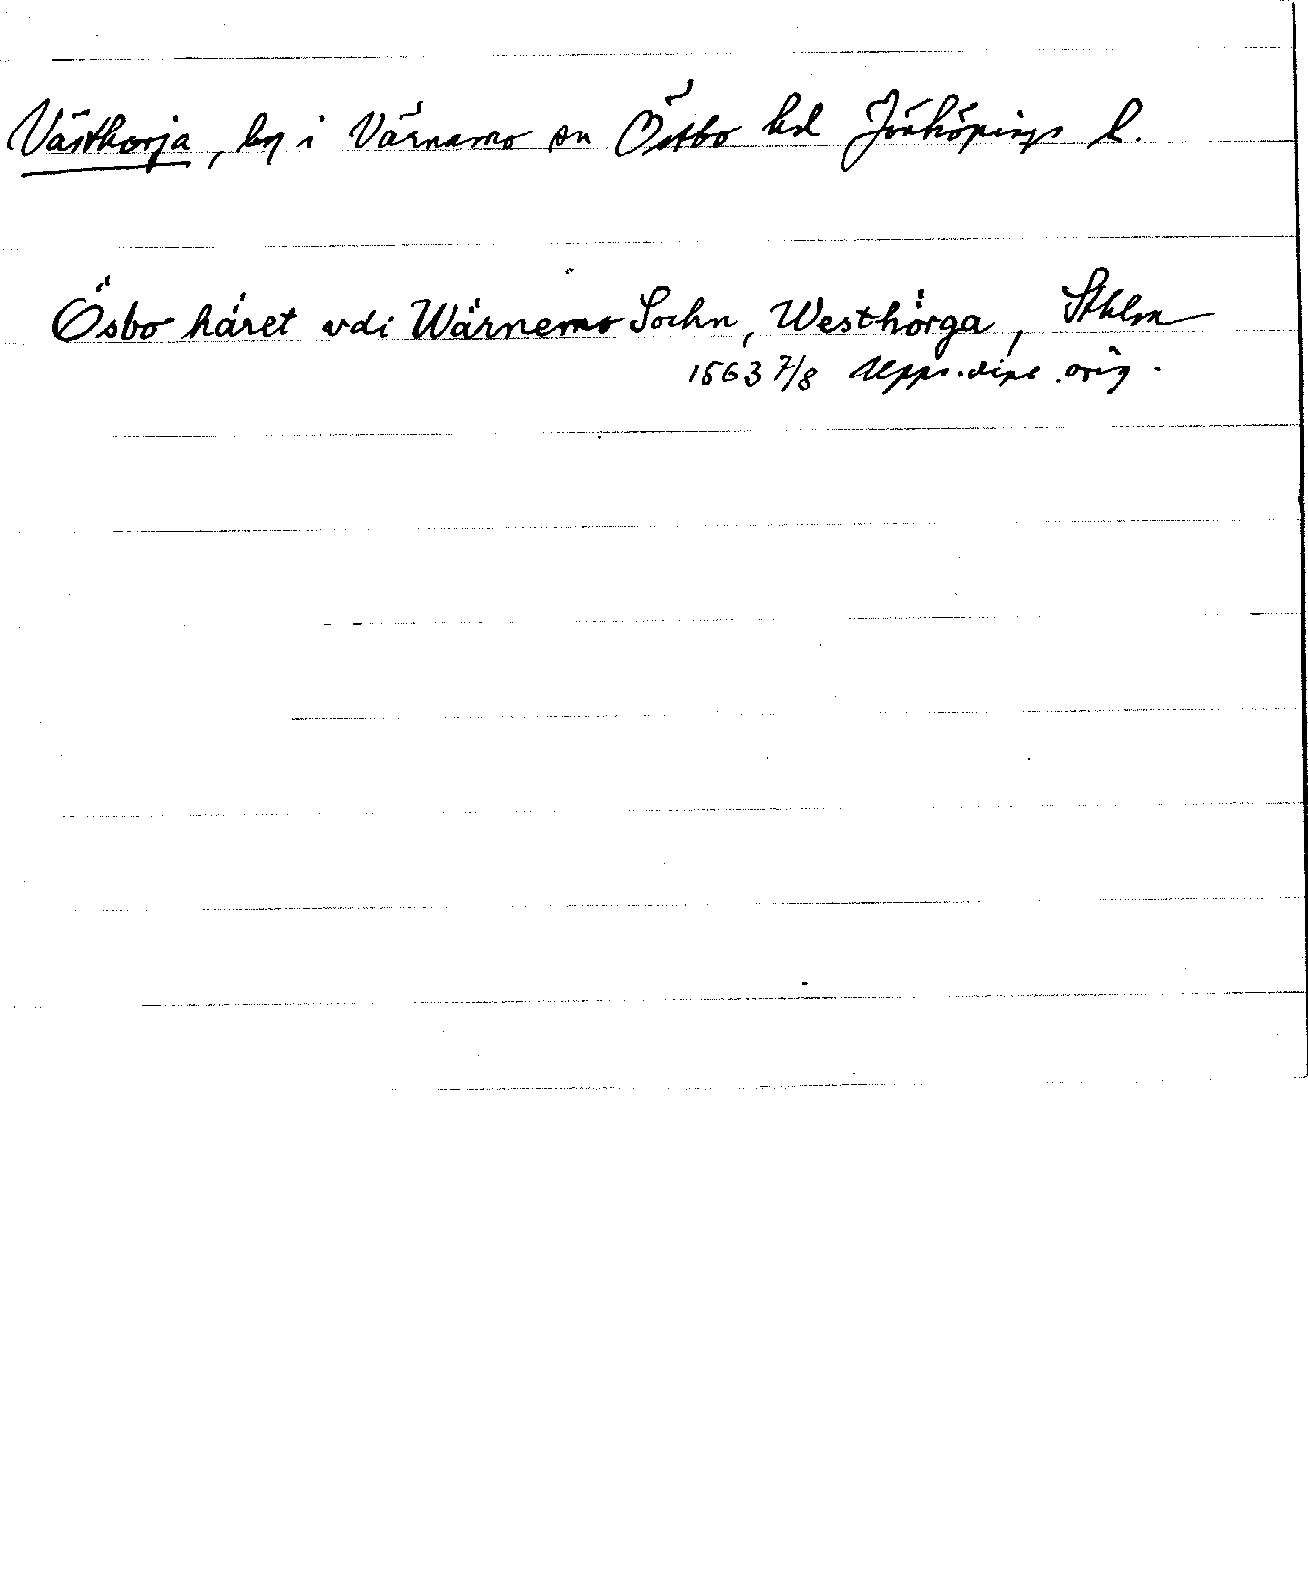 Västhorja, by i Värnamo sn Östbo hd Jönköpings l.
Ösbo häret vdi Wärnemo Sochn, Westhörga, Sthlm
1563 7/8 Upps. dipl. orig.